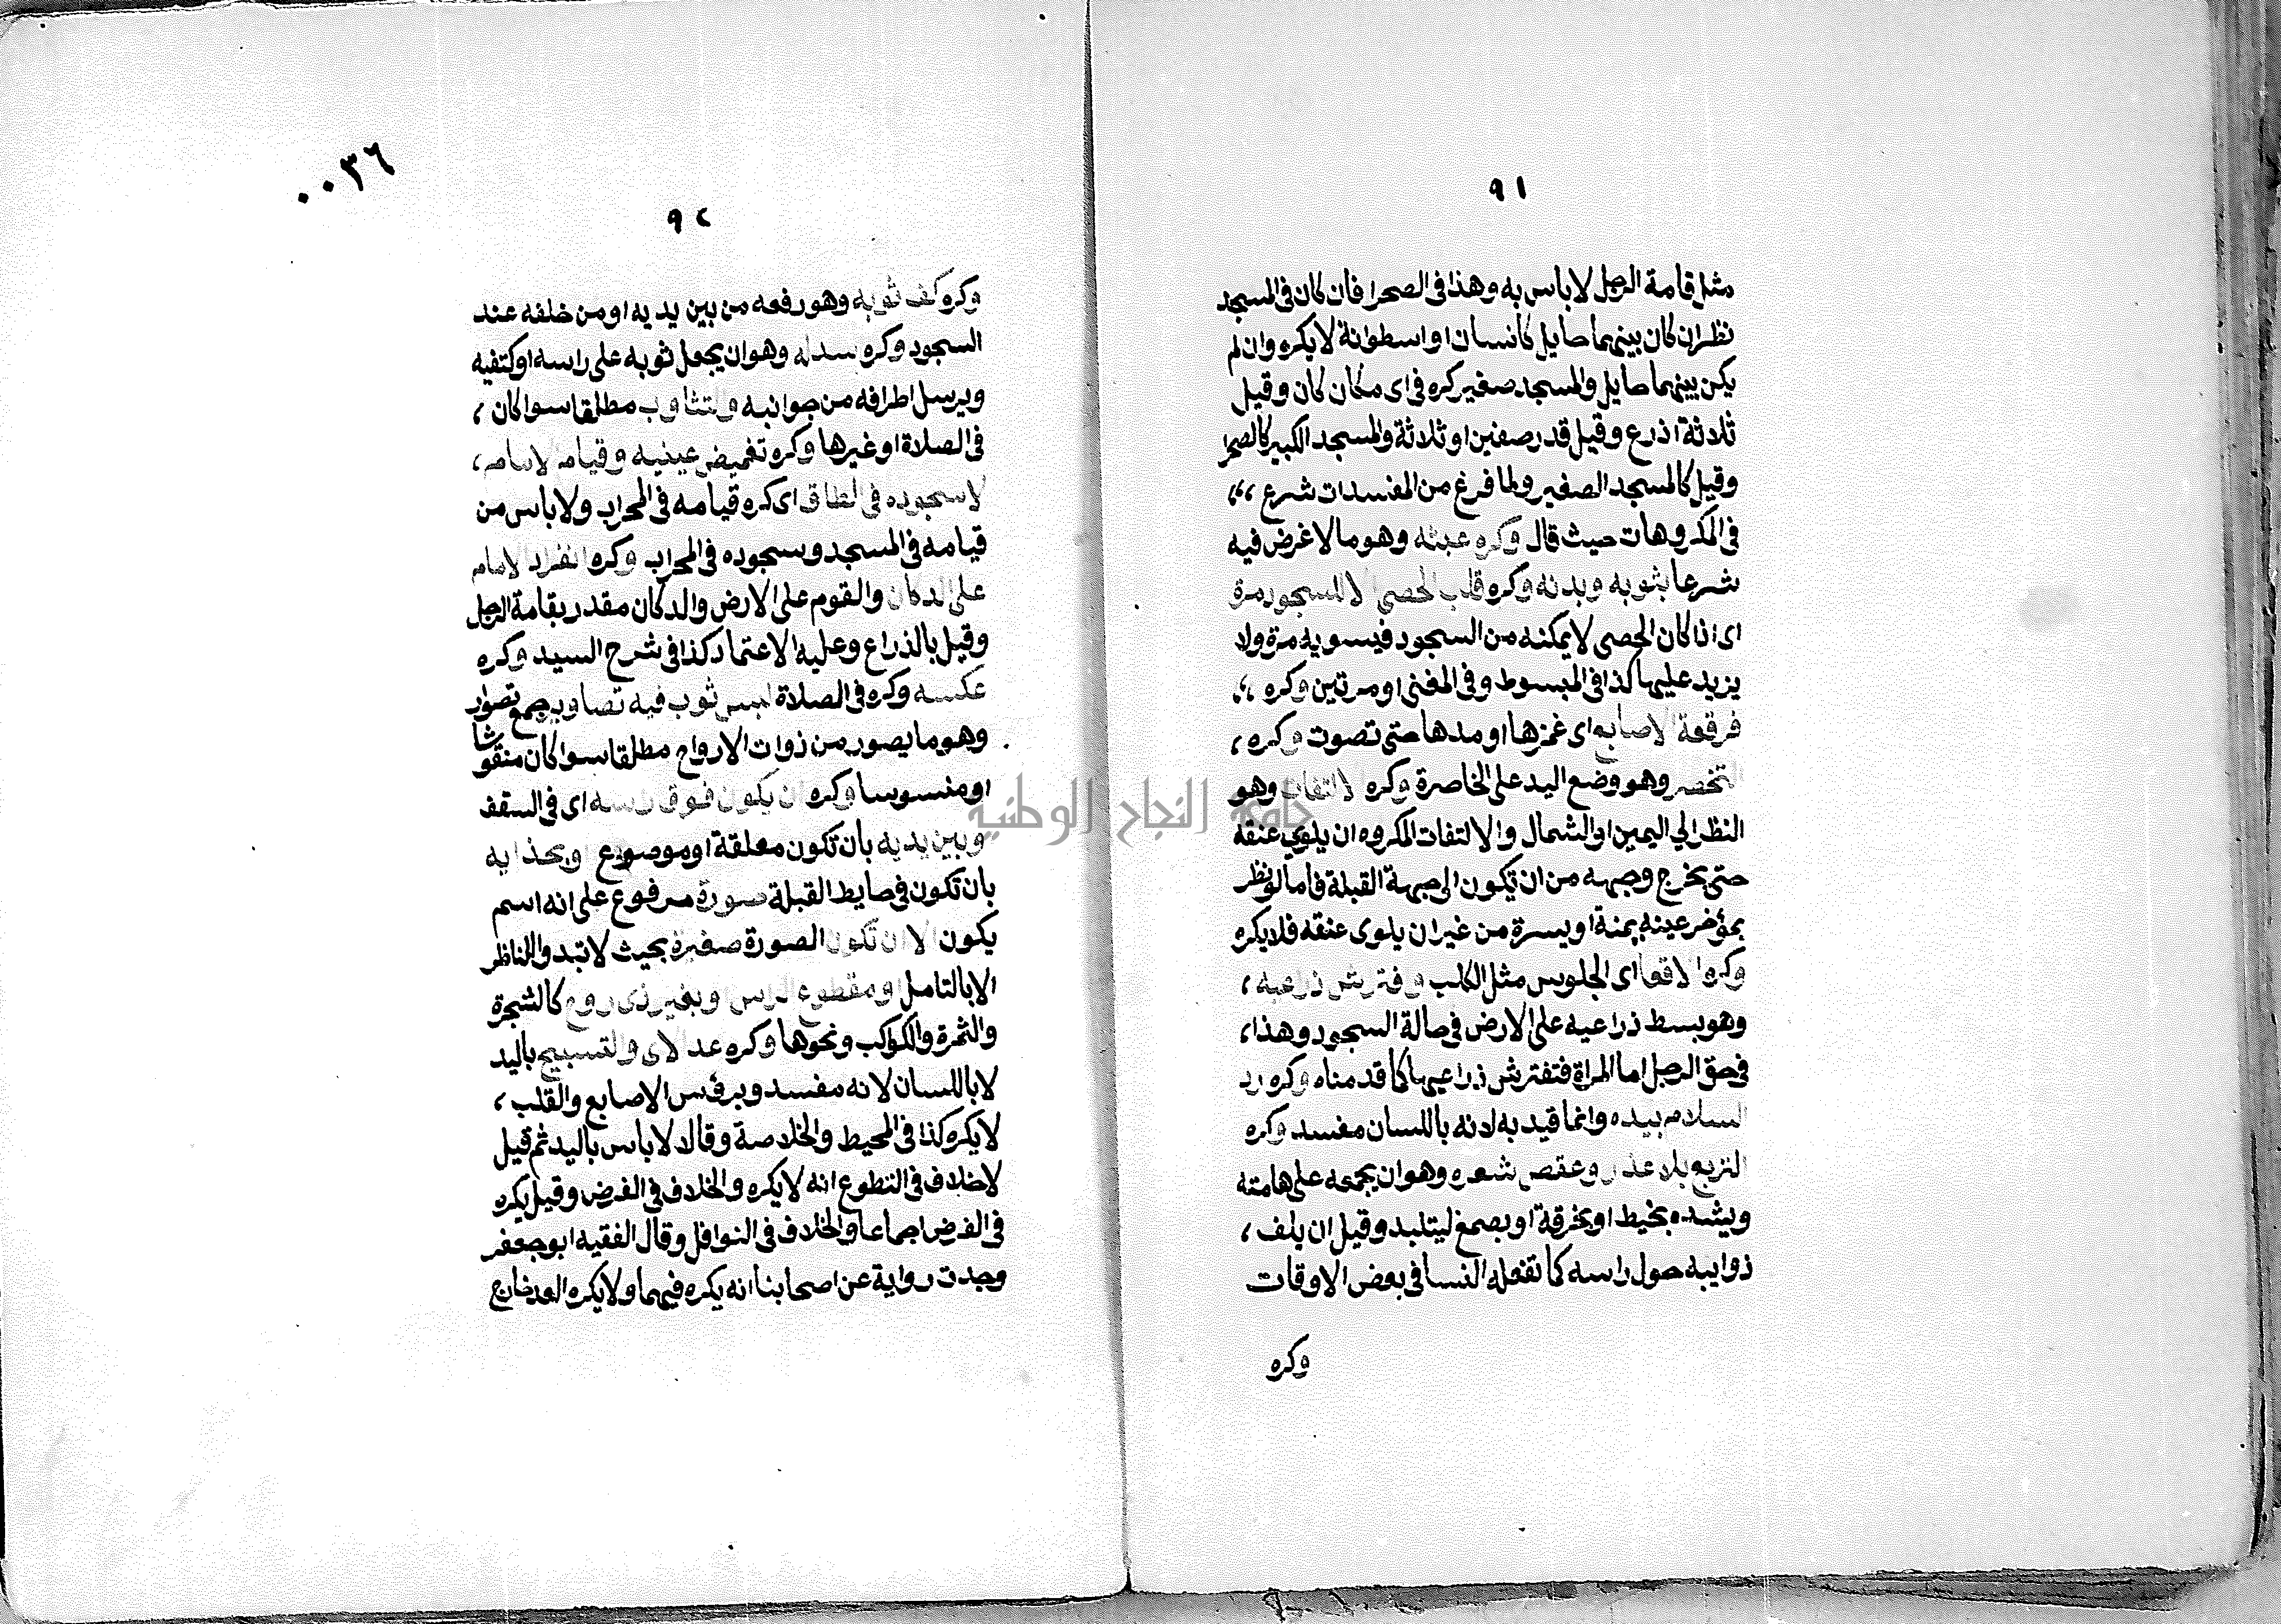 ٩١
مثل قامة الرجل لا باس به وهذا في الصحرا فان كان في المسجد
نظران كان بينهما حايل كانسان او اسطوانة لا يكره وان لم
يكن بينهما حايل والمسجد صغير كره في اى مكان كان وقيل
ثلاثة اذرع وقيل قدر صفين او ثلاثة والمسجد الكبير كالصحرا
وقيل كالمسجد الصغير ولما فرغ من المفسدات شرع ،،
في المكروهات حيث قال وكره عبثه وهو ما لا غرض فيه
شرعا بثوبه وبدنه وكره قلب الحصى الا للسجود مرة
اى اذا كان الحصى لا يمكنه من السجود فيسويه مرة ولا
يزيد عليها كذا في المبسوط وفي المغنى او مرتين وكره ،،
فرقعة الاصابع اى غمزها او مدها حتى تصوت وكره ،
التخصر وهو وضع اليد على الخاصرة وكره الالتفات وهو
النظر الي اليمين او الشمال والالتفات المكروه ان يلوي عنقه
حتى يخرج وجهه من ان تكون الى جهة القبلة فاما لو نظر
بمؤخر عينه يمنة او يسرة من غير ان يلوى عنقه فلا يكره
وكره الاقعا اى الجلوس مثل الكلب وافتراش ذراعيه ،
وهو بسط ذراعيه على الارض في حالة السجود وهذا ،
في حق الرجل اما المراة فتفترش ذراعيها كما قدمناه وكره رد
السلام بيده وانما قيد به لانه باللسان مفسد وكره
التربع بلا عذر وعقص شعره وهو ان يجمعه على هامته
ويشده بخيط او بخرقة او بصمغ ليتلبد وقيل ان يلف ،
ذوايبه حول راسه كما تفعله النسا في بعض الاوقات
وكره
٠٠٣٦
٩٢
وكره كف ثوبه وهو رفعه من بين يديه او من خلفه عند
السجود وكره سدله وهو ان يجعل ثوبه على راسه او كتفيه
ويرسل اطرافه من جوانبه والتثاوب مطلقا سوا كان ،
في الصلاة او غيرها وكره تغميض عينيه وقيام الامام ،
لا سجوده في الطاق اى كره قيامه في المحراب ولا باس من
قيامه في المسجد وسجوده في المحراب وكره انفراد الامام
على الدكان والقوم على الارض والدكان مقدر بقامة الرجل
وقيل بالذراع وعليه الاعتماد كذا في شرح السيد وكره
عكسه وكره في الصلاة لبس ثوب فيه تصاوير جمع تصوير
وهو ما يصور من ذوات الارواح مطلقا سوا كان منقوشا
او منسوسا وكره ان يكون فوق راسه اى في السقف
وبين يديه بان تكون معلقة او موضوع او بحذايه
بان تكون في حايط القبلة صورة مرفوع على انه اسم
يكون الا ان تكون الصورة صغيرة بحيث لا تبدو للناظر
الا بالتامل او مقطوع الراس او بغير ذى روح كالشجرة
والثمرة والكواكب ونحوها وكره عد الاى والتسبيح باليد
لا باللسان لانه مفسد وبرؤس الاصابع والقلب ،
لا يكره كذا في المحيط والخلاصة وقالا لا باس باليد ثم قيل
لا خلاف في التطوع انه لا يكره والخلاف في الفرض وقيل يكره
في الفرض اجماعا والخلاف في النوافل وقال الفقيه ابو جعفر
وجدت رواية عن اصحابنا انه يكره فيهما ولا يكره العد خارج
جامعة النجاح الوطنية